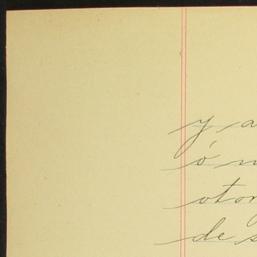 y a
ó
otor
de s